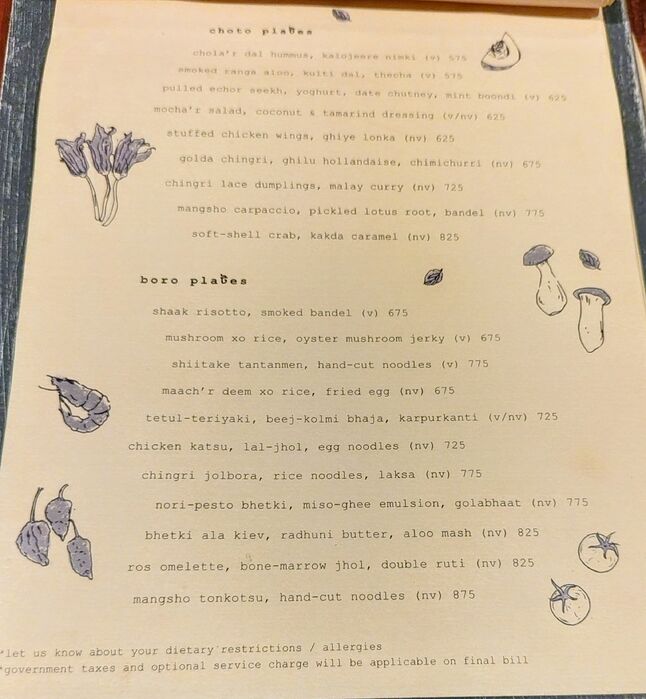 choto plates
chola'r dal hummus, kalojeere nimki (v) 575
smoked ranga aloo, kulti dal, thecha (v) 575
pulled echor seekh, yoghurt, date chutney, mint boondi (v) 625
mocha'r salad, coconut & tamarind dressing (v/nv) 625
stuffed chicken wings, ghiye lonka (nv) 625
golda chingri, ghilu hollandaise, chimichurri (nv) 675
chingri lace dumplings, malay curry (nv) 725
mangsho carpaccio, pickled lotus root, bandel (nv) 775
soft-shell crab, kakda caramel (nv) 825
boro plates
shaak risotto, smoked bandel (v) 675
mushroom xo rice, oyster mushroom jerky (v) 675
shiitake tantanmen, hand-cut noodles (v) 775
maach'r deem xo rice, fried egg (nv) 675
tetul-teriyaki, beej-kolmi bhaja, karpurkanti (v/nv) 725
chicken katsu, lal-jhol, egg noodles (nv) 725
chingri jolbora, rice noodles, laksa (nv) 775
nori-pesto bhetki, miso-ghee emulsion, golabhaat (nv) 775
bhetki ala kiev, radhuni butter, aloo mash (nv) 825
ros omelette, bone-marrow jhol, double ruti (nv) 825
mangsho tonkotsu, hand-cut noodles (nv) 875
*let us know about your dietary restrictions / allergies
*government taxes and optional service charge will be applicable on final bill